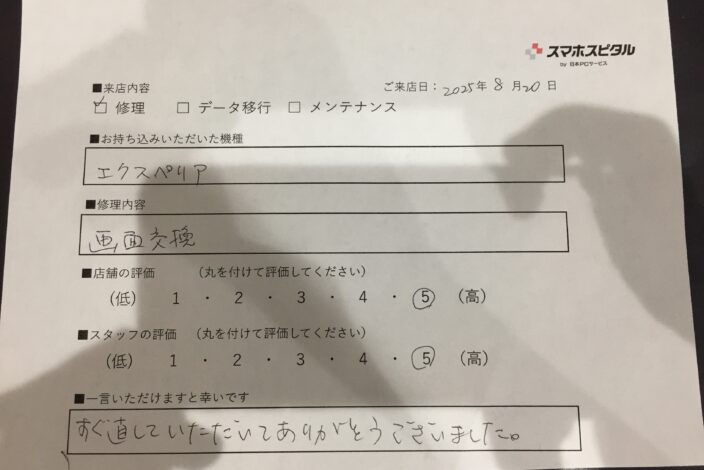 スマホスピタル
by 日本PCサービス
■来店内容
ご来店日：2025年 8月20日
修理 □ データ移行 □ メンテナンス
■お持ち込みいただいた機種
エクスペリア
■修理内容
画面交換
■店舗の評価 （丸を付けて評価してください）
（低） 1 ・ 2 ・ 3 ・ 4 ・ 5 （高）
■スタッフの評価 （丸を付けて評価してください）
（低） 1 ・ 2 ・ 3 ・ 4 ・ 5 （高）
■一言いただけますと幸いです
すぐ直していただいてありがとうございました。